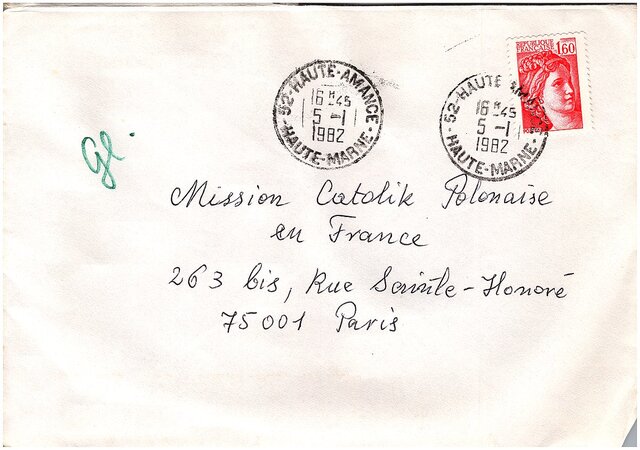 REPUBLIQUE FRANCAISE 1,60
52-HAUTE-AMANCE
16 H 45
5 -1
1982
HAUTE-MARNE
52-HAUTE AMANCE
16 H 45
5 -1
1982
HAUTE-MARNE
Gl.
Mission Catolik Polonaise
en France
263 bis, Rue Sainte-Honoré
75001 Paris